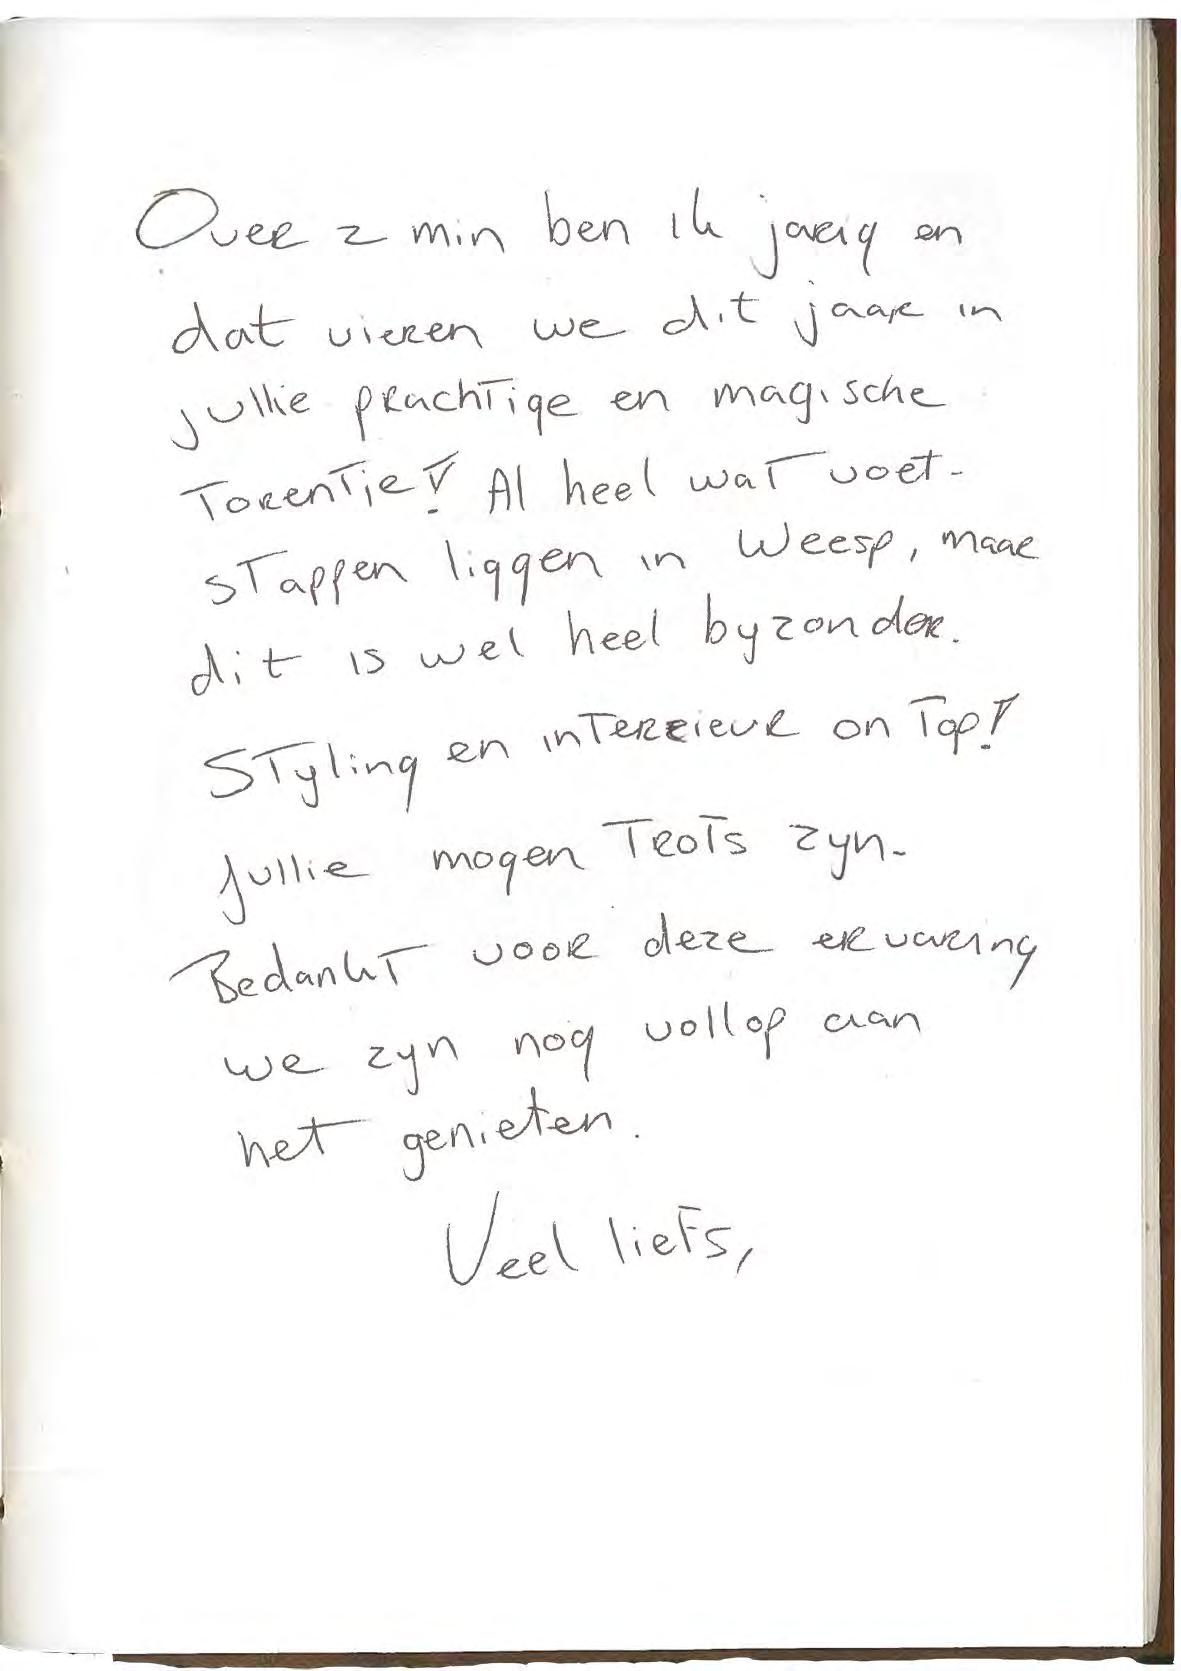 Over 2 min ben ik jarig en
dat vieren we dit jaar in
jullie prachtige en magische
Torentje! Al heel wat voet-
stappen liggen in Weesp, maar
dit is wel heel byzonder.
Styling en interrieur on Top!
Jullie mogen Trots zyn.
Bedankt voor deze ervaring
we zyn nog vollop aan
het genieten.
Veel liefs,